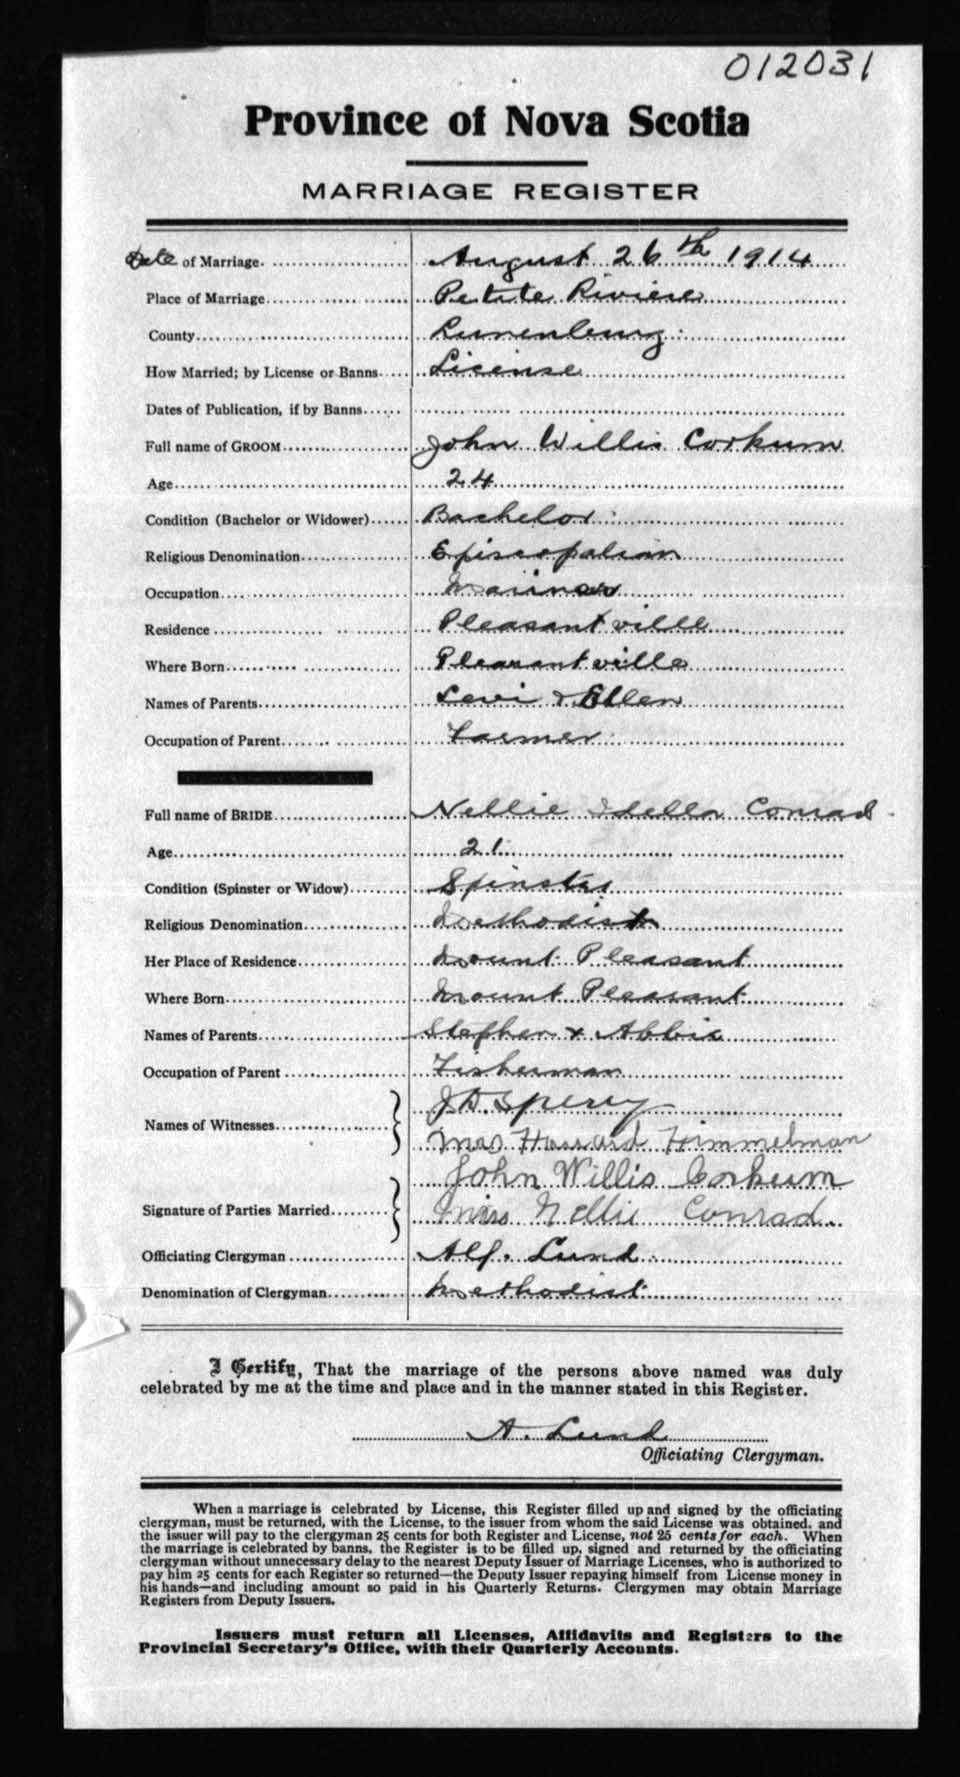 012031
Province of Nova Scotia
MARRIAGE REGISTER
Date of Marriage. August 26th 1914
Place of Marriage Petite Riviere
County Lunenburg
How Married; by License or Banns License
Dates of Publication, if by Banns
Full name of GROOM John Willis Corkum
Age 24
Condition (Bachelor or Widower) Bachelor
Religious Denomination Episcopalian
Occupation Mariner
Residence Pleasantville
Where Born Pleasantville
Names of Parents Levi & Ellen
Occupation of Parent Farmer
Full name of BRIDE Nellie Idella Conrad
Age 21
Condition (Spinster or Widow) Spinster
Religious Denomination Methodist
Her Place of Residence Mount Pleasant
Where Born Mount Pleasant
Names of Parents Stephen & Abbie
Occupation of Parent Fisherman
J D. Sperry
Names of Witnesses
Mrs Howard Himmelman
John Willis Corkum
Signature of Parties Married Miss Nellie Conrad
Officiating Clergyman Alf. Lund
Denomination of Clergyman Methodist
I Certify, That the marriage of the persons above named was duly
celebrated by me at the time and place and in the manner stated in this Register.
A. Lund
Officiating Clergyman.
When a marriage is celebrated by License, this Register filled up and signed by the officiating
clergyman, must be returned, with the License, to the issuer from whom the said License was obtained, and
the issuer will pay to the clergyman 25 cents for both Register and License, not 25 cents for each. When
the marriage is celebrated by banns, the Register is to be filled up, signed and returned by the officiating
clergyman without unnecessary delay to the nearest Deputy Issuer of Marriage Licenses, who is authorized to
pay him 25 cents for each Register so returned—the Deputy Issuer repaying himself from License money in
his hands—and including amount so paid in his Quarterly Returns. Clergymen may obtain Marriage
Registers from Deputy Issuers.
Issuers must return all Licenses, Affidavits and Registers to the
Provincial Secretary's Office, with their Quarterly Accounts.